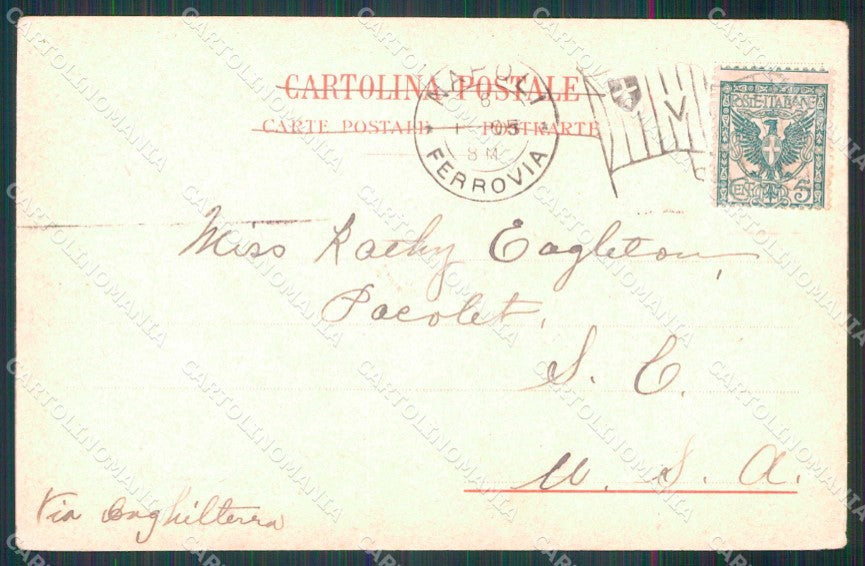 CARTOLINA POSTALE
CARTE POSTALE - POSTKARTE
NAPOLI
8
1 05
8 M
* FERROVIA *
POSTE ITALIANE
CENT. 5
Miss Kathy Eagleton,
Pacolet,
S. C.
U. S. A.
Via Inghilterra
CARTOLINOMANIA